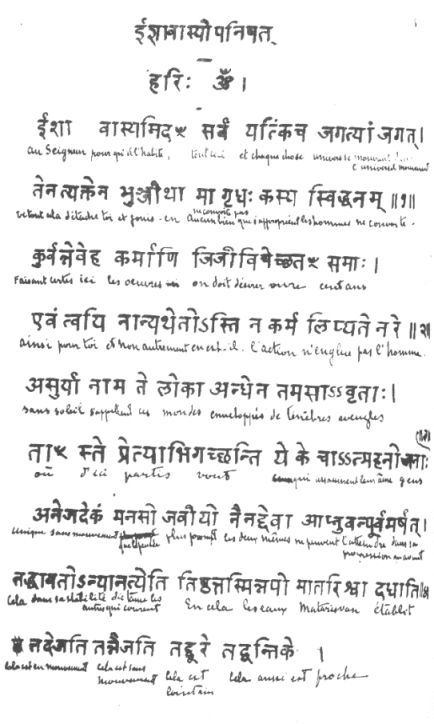 ईशावास्योपनिषत्
हरिः ॐ ।
ईशा वास्यमिदं सर्वं यत्किंच जगत्यां जगत् ।
au Seigneur pour qu'il l'habite, tout ceci et chaque chose univers mouvant
तेन त्यक्तेन भुञ्जीथा मा गृधः कस्य स्विद्धनम् ॥१॥
ne convoite pas
कुर्वन्नेवेह कर्माणि जिजीविषेच्छतं समाः ।
Faisant certes ici les oeuvres on doit désirer vivre cent ans
एवं त्वयि नान्यथेतोऽस्ति न कर्म लिप्यते नरे ॥२॥
ainsi pour toi et non autrement en est-il. l'action n'englue pas l'homme.
असुर्या नाम ते लोका अन्धेन तमसाऽऽवृताः ।
sans soleil s'appellent ces mondes enveloppés de ténèbres aveugles
तांस्ते प्रेत्याभिगच्छन्ति ये के चाऽऽत्महनो जनाः
où d'ici partis vont leur âme gens
अनेजदेकं मनसो जवीयो नैनद्देवा आप्नुवन्पूर्वमर्षत् ।
unique sans mouvement plus prompt les dieux mêmes ne peuvent l'atteindre dans sa
progression en avant
तद्धावतोऽन्यानत्येति तिष्ठत्तस्मिन्नपो मातरिश्वा दधाति ॥
cela dans sa stabilité les
autres qui courent En cela les eaux Matariswan établit
तदेजति तन्नैजति तद्दूरे तद्वन्तिके ।
cela est en mouvement cela est sans
mouvement cela est
lointain cela aussi est proche